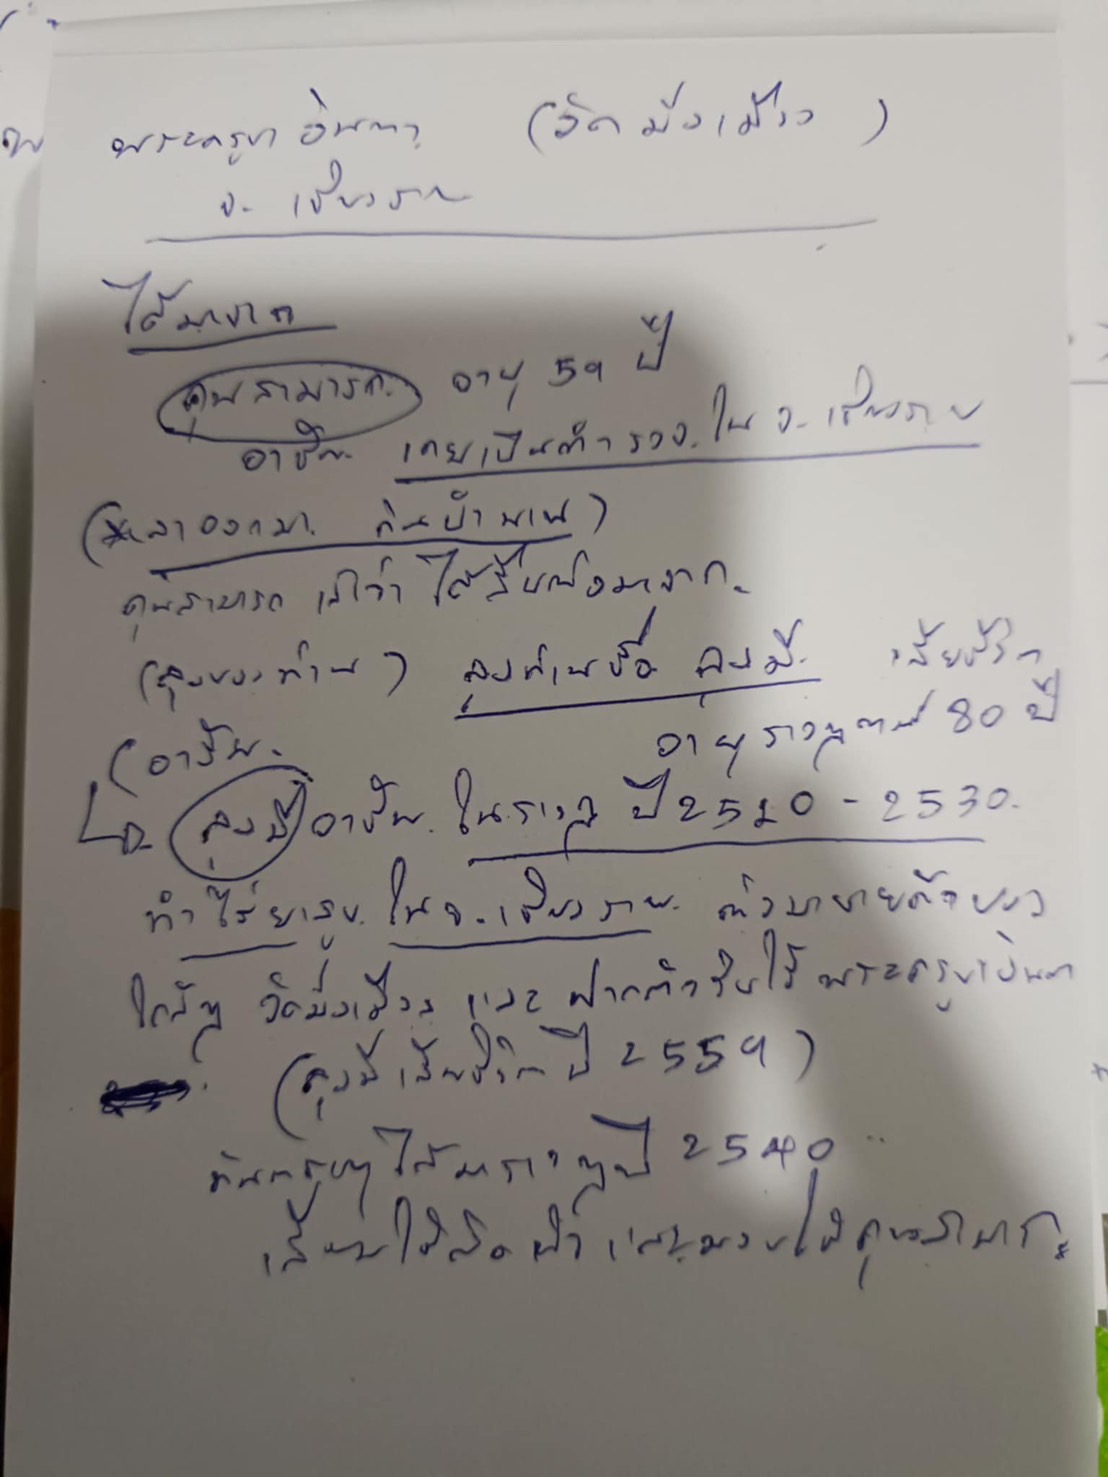 พระครูบาอินตา (วัดมิ่งเมือง)
จ. เชียงราย
ได้มาจาก
คุณสามารถ อายุ 59 ปี
อาชีพ เคยเป็นตำรวจ ใน จ. เชียงราย
(ลาออกมา
คุณสามารถ เล่าว่า ได้สืบต่อมาจาก
(ลุงของท่าน) ลุงท่านชื่อ ลุงมี เสียชีวิต
(อาชีพ อายุราวๆ 80 ปี
ลุงมี อาชีพ ในราวๆ ปี 2520 - 2530
ทำไร่ยาสูบ ใน จ. เชียงราย
ใกล้ๆ วัดมิ่งเมือง และ ฝากตัวรับใช้ พระครูบาอินตา
(ลุงมีเสียชีวิต ปี 2559)
ได้มาราวๆ ปี 2540
และมอบให้คุณสามารถ